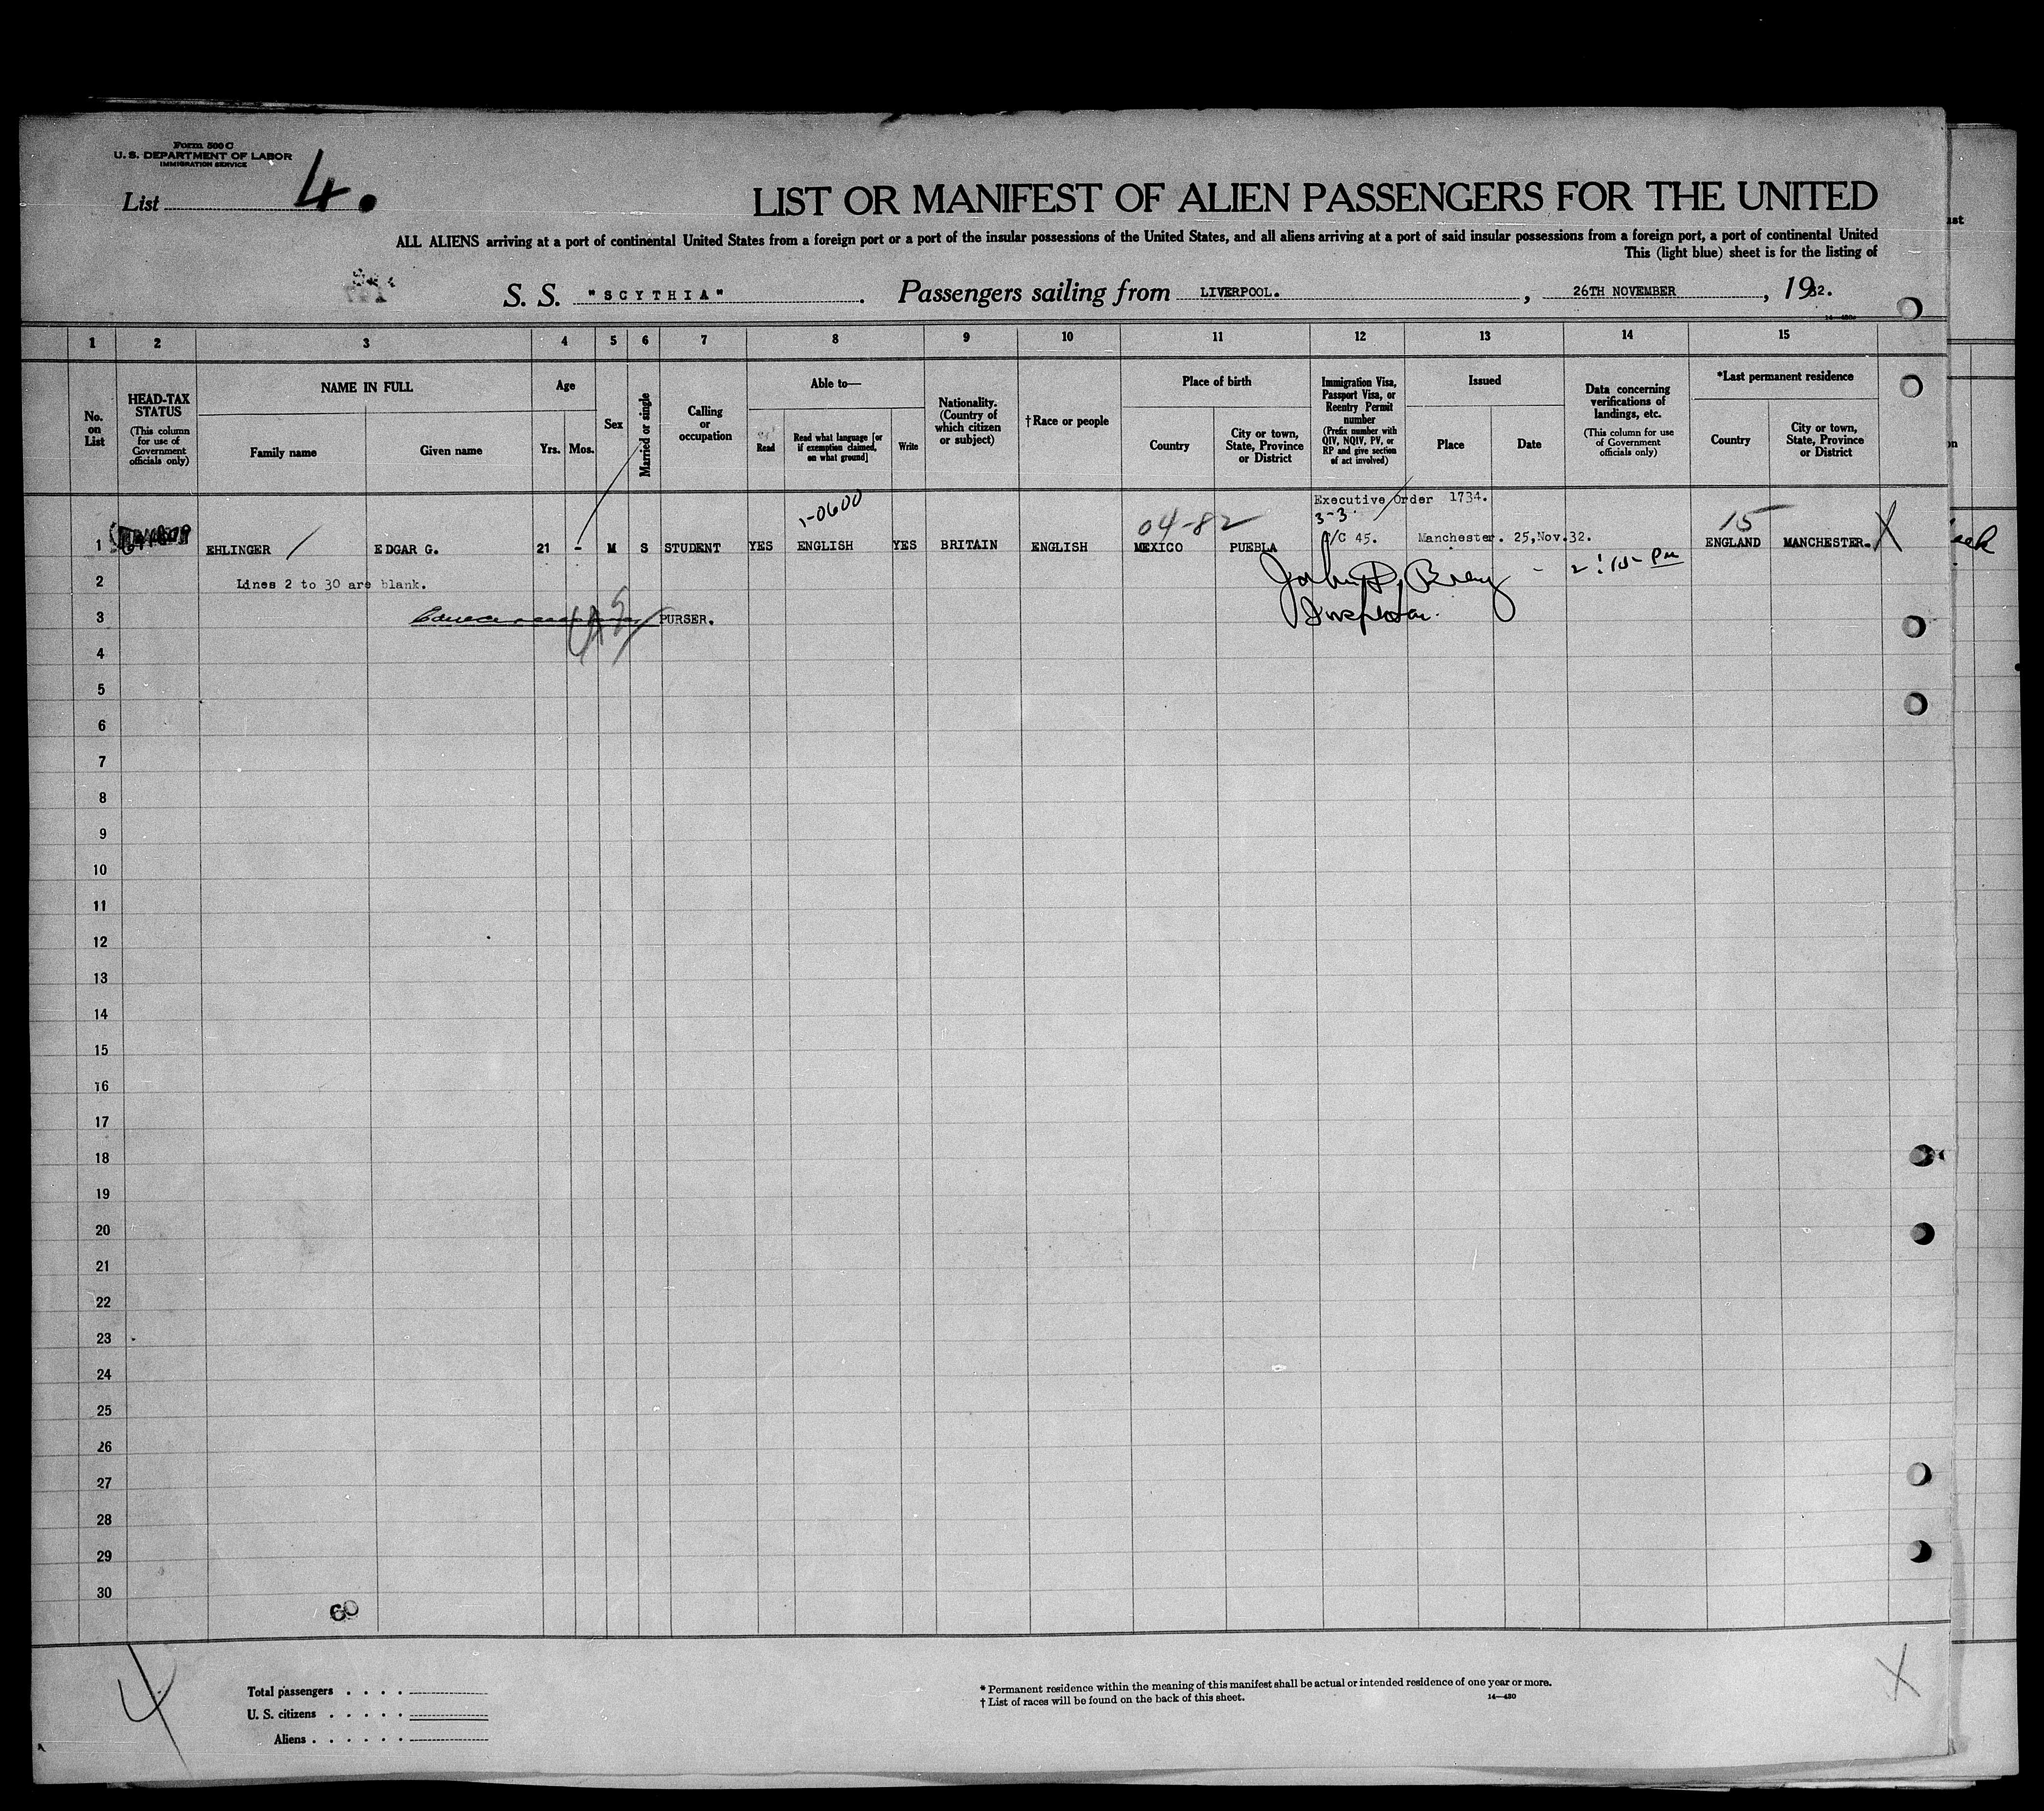 Form 500 C
U. S. DEPARTMENT OF LABOR
IMMIGRATION SERVICE
List 4.
LIST OR MANIFEST OF ALIEN PASSENGERS FOR THE UNITED
ALL ALIENS arriving at a port of continental United States from a foreign port or a port of the insular possessions of the United States, and all aliens arriving at a port of said insular possessions from a foreign port, a port of continental United
This (light blue) sheet is for the listing of
S. S. "SCYTHIA". Passengers sailing from LIVERPOOL. , 26TH NOVEMBER , 1932.
1 2 3 4 5 6 7 8 9 10 11 12 13 14 15
No. on List
HEAD-TAX STATUS
(This column for use of Government officials only)
NAME IN FULL
Family name
Given name
Age
Yrs. Mos.
Sex
Married or single
Calling or occupation
Able to—
Read
Read what language [or if exemption claimed, on what ground]
Write
Nationality. (Country of which citizen or subject)
†Race or people
Place of birth
Country
City or town, State, Province or District
Immigration Visa, Passport Visa, or Reentry Permit number
(Prefix number with QIV, NQIV, PV, or RP and give section of act involved)
Issued
Place
Date
Data concerning verifications of landings, etc.
(This column for use of Government officials only)
*Last permanent residence
Country
City or town, State, Province or District
Executive Order 1734.
1-0600
04-82
3-3
15
1 EHLINGER EDGAR G. 21 - M S STUDENT YES ENGLISH YES BRITAIN ENGLISH MEXICO PUEBLA /C 45. Manchester. 25,Nov.32. ENGLAND MANCHESTER. X
2 Lines 2 to 30 are blank.
John D. Bray - 2:10 PM
Inspector.
3 PURSER.
4
5
6
7
8
9
10
11
12
13
14
15
16
17
18
19
20
21
22
23
24
25
26
27
28
29
30
60
4
X
Total passengers
U. S. citizens
Aliens
* Permanent residence within the meaning of this manifest shall be actual or intended residence of one year or more.
† List of races will be found on the back of this sheet.
14—430